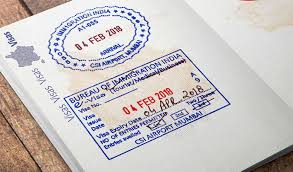 Visas
Visas
Visas
BUREAU OF IMMIGRATION INDIA
A1-055
04 FEB 2018
ARRIVAL
CSI AIRPORT MUMBAI
BUREAU OF IMMIGRATION INDIA
e-Visa Tourist/Medical/Business
A
9
e-Visa No
04 FEB 2018
Visa Expiry Date 04 APR 2018
NO OF ENTRIES PERMITTED
CSI AIRPORT MUMBAI